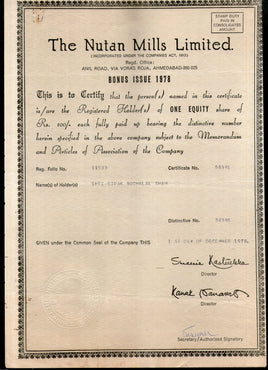 STAMP DUTY
PAID IN
CONSOLIDATED
AMOUNT
The Nutan Mills Limited.
(INCORPORATED UNDER THE COMPANIES ACT, 1913)
Regd. Office:
ANIL ROAD, VIA VORAS ROJA, AHMEDABAD-380 025
BONUS ISSUE 1978
This is to Certify that the person(s) named in this certificate
is/are the Registered Holder(s) of ONE EQUITY share of
Rs. 100/- each fully paid up bearing the distinctive number
herein specified in the above company subject to the Memorandum
and Articles of Association of the Company
Reg. Folio No. Certificate No.
Name(s) of Holder(s)
Distinctive No.
GIVEN under the Common Seal of the Company THIS DAY OF DECEMBER 1978.
Director
Director
Secretary/Authorised Signatory